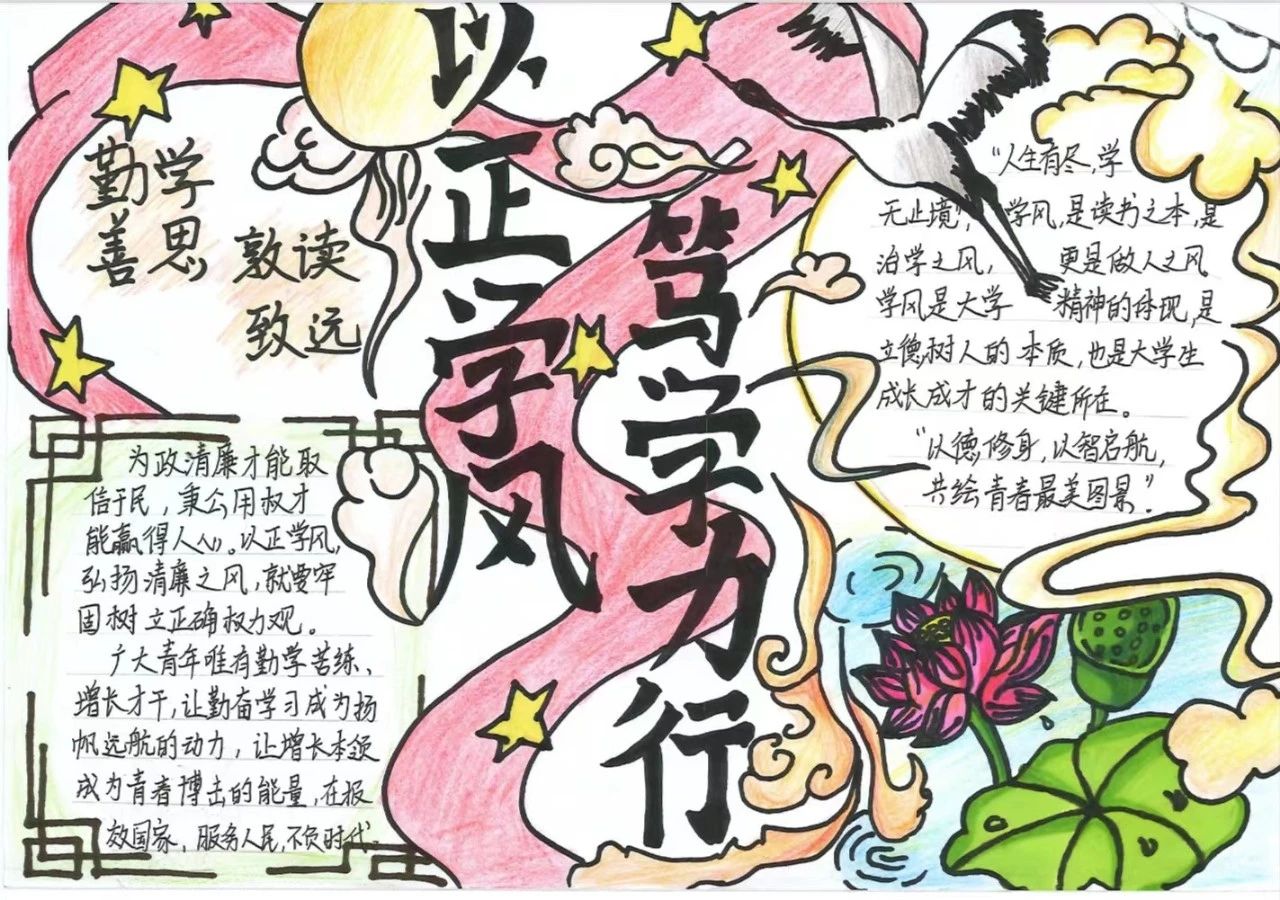 以正学风
笃学力行
勤学
善思
敦读
致远
为政清廉才能取
信于民，秉公用权才
能赢得人心。以正学风，
弘扬清廉之风，就要牢
固树立正确权力观。
广大青年唯有勤学苦练、
增长才干，让勤奋学习成为扬
帆远航的动力，让增长本领
成为青春搏击的能量，在报
效国家、服务人民，不负时代。
“人生有冬，学
无止境”，学风，是读书之本，是
治学之风，更是做人之风。
学风是大学精神的体现，是
立德树人的本质，也是大学生
成长成才的关键所在。
“以德修身，以智启航，
共绘青春最美图景”。